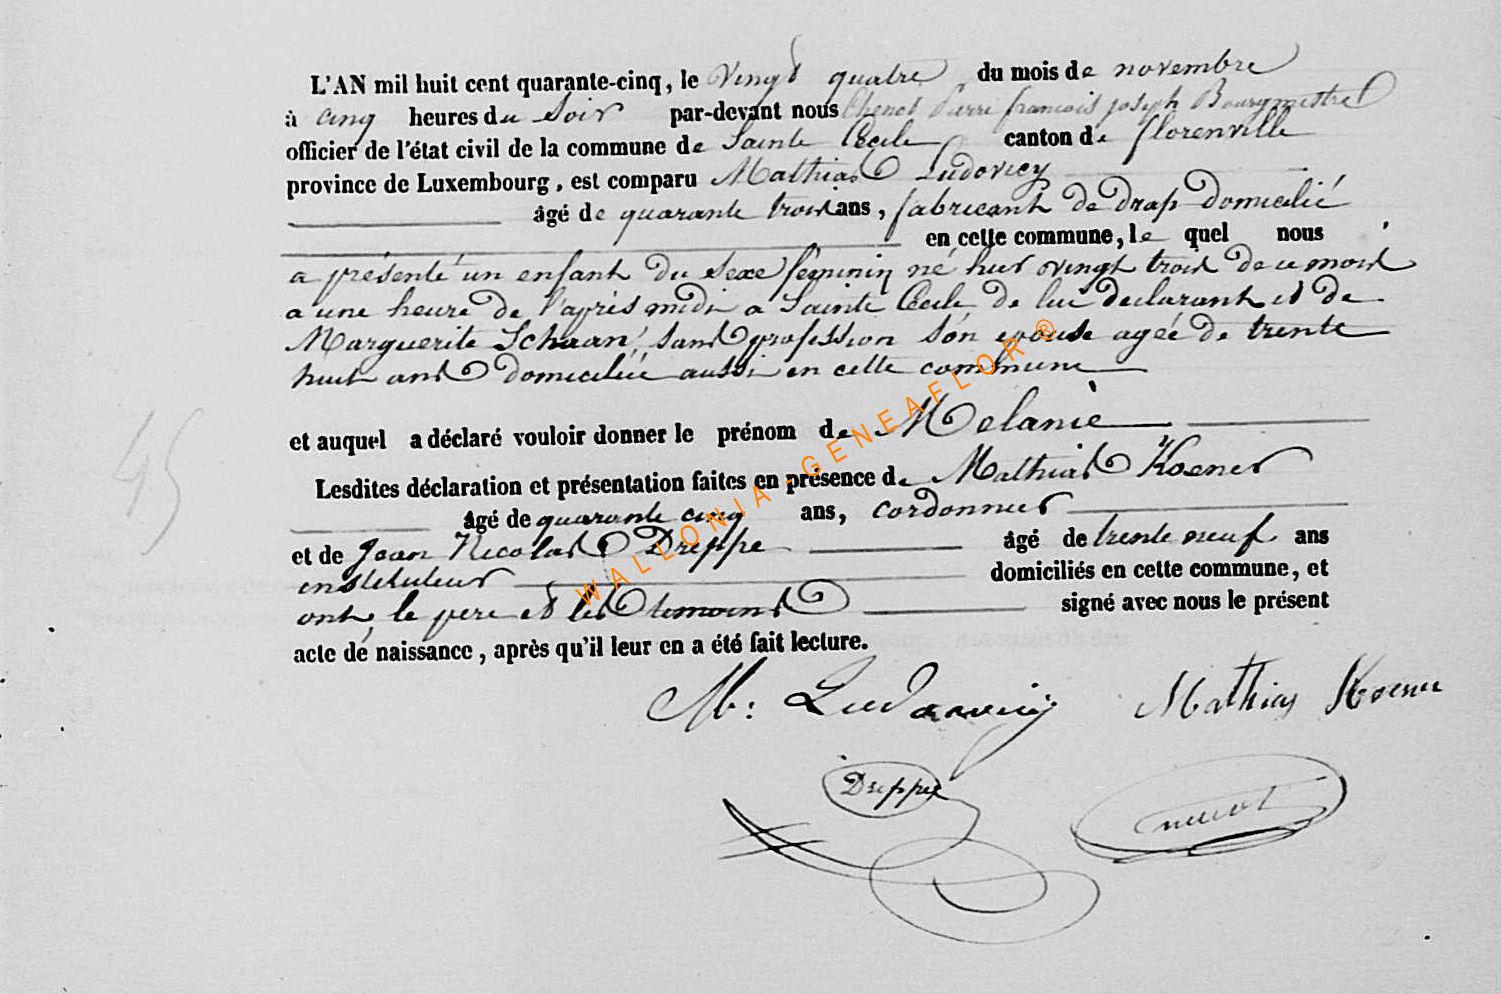 L'AN mil huit cent quarante-cinq, le vingt quatre du mois de novembre
à cinq heures du soir par-devant nous Chenot Pierre francois joseph Bourgmestre
officier de l'état civil de la commune de Sainte Cécile canton de florenville
province de Luxembourg, est comparu Mathias Ludovicy
âgé de quarante trois ans, fabricant de drap domicilié
en cette commune, le quel nous
a présenté un enfant du sexe féminin né hier vingt trois de ce mois
a une heure de l'après midi a Sainte Cécile de lui déclarant et de
Marguerite Schaan, sans profession son epouse agée de trente
huit ans domiciliée aussi en cette commune
et auquel a déclaré vouloir donner le prénom de Mélanie
Lesdites déclaration et présentation faites en présence de Mathias Koener
âgé de quarante cinq ans, cordonnier
et de Jean Nicolas Dreppe âgé de trente neuf ans
instituteur domiciliés en cette commune, et
ont, le pere et les temoins signé avec nous le présent
acte de naissance, après qu'il leur en a été fait lecture.
M: Ludovicy Mathias Koener
Dreppe Chenot
45
WALLONIA - GENEAFLOR ®